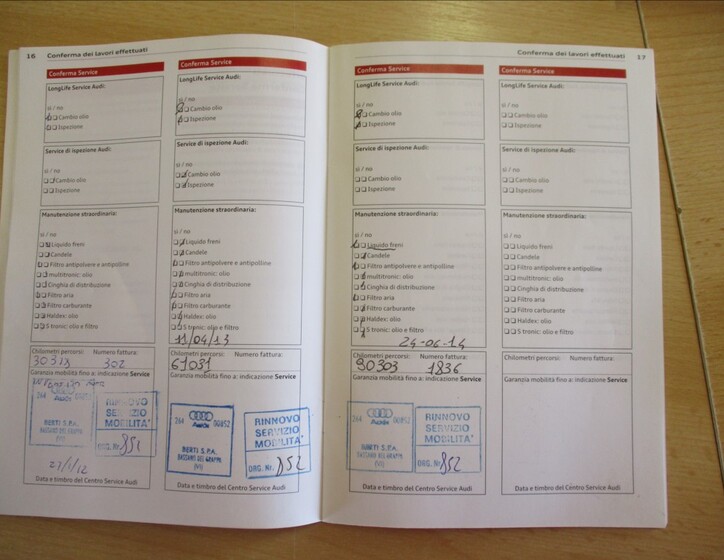 16 Conferma dei lavori effettuati
Conferma Service
LongLife Service Audi:
sì / no
Cambio olio
Ispezione
Service di ispezione Audi:
sì / no
Cambio olio
Ispezione
Manutenzione straordinaria:
sì / no
Liquido freni
Candele
Filtro antipolvere e antipolline
multitronic: olio
Cinghia di distribuzione
Filtro aria
Filtro carburante
Haldex: olio
S tronic: olio e filtro
Chilometri percorsi: Numero fattura:
302
Garanzia mobilità fino a: indicazione Service
264
Audi
BERTI S.P.A.
BASSANO DEL GRAPPA
(VI)
RINNOVO
SERVIZIO
MOBILITA'
ORG. Nr. 852
Data e timbro del Centro Service Audi
Conferma Service
LongLife Service Audi:
sì / no
Cambio olio
Ispezione
Service di ispezione Audi:
sì / no
Cambio olio
Ispezione
Manutenzione straordinaria:
sì / no
Liquido freni
Candele
Filtro antipolvere e antipolline
multitronic: olio
Cinghia di distribuzione
Filtro aria
Filtro carburante
Haldex: olio
S tronic: olio e filtro
11/04/13
Chilometri percorsi: Numero fattura:
61031
Garanzia mobilità fino a: indicazione Service
264 00852
Audi
BERTI S.P.A.
BASSANO DEL GRAPPA
(VI)
RINNOVO
SERVIZIO
MOBILITA'
ORG. Nr. 852
Data e timbro del Centro Service Audi
Conferma dei lavori effettuati 17
Conferma Service
LongLife Service Audi:
sì / no
Cambio olio
Ispezione
Service di ispezione Audi:
sì / no
Cambio olio
Ispezione
Manutenzione straordinaria:
sì / no
Liquido freni
Candele
Filtro antipolvere e antipolline
multitronic: olio
Cinghia di distribuzione
Filtro aria
Filtro carburante
Haldex: olio
S tronic: olio e filtro
24-06-14
Chilometri percorsi: Numero fattura:
90303 1836
Garanzia mobilità fino a: indicazione Service
264 00852
Audi
BERTI S.P.A.
BASSANO DEL GRAPPA
(VI)
RINNOVO
SERVIZIO
MOBILITA'
ORG. Nr. 852
Data e timbro del Centro Service Audi
Conferma Service
LongLife Service Audi:
sì / no
Cambio olio
Ispezione
Service di ispezione Audi:
sì / no
Cambio olio
Ispezione
Manutenzione straordinaria:
sì / no
Liquido freni
Candele
Filtro antipolvere e antipolline
multitronic: olio
Cinghia di distribuzione
Filtro aria
Filtro carburante
Haldex: olio
S tronic: olio e filtro
Chilometri percorsi: Numero fattura:
Garanzia mobilità fino a: indicazione Service
Data e timbro del Centro Service Audi